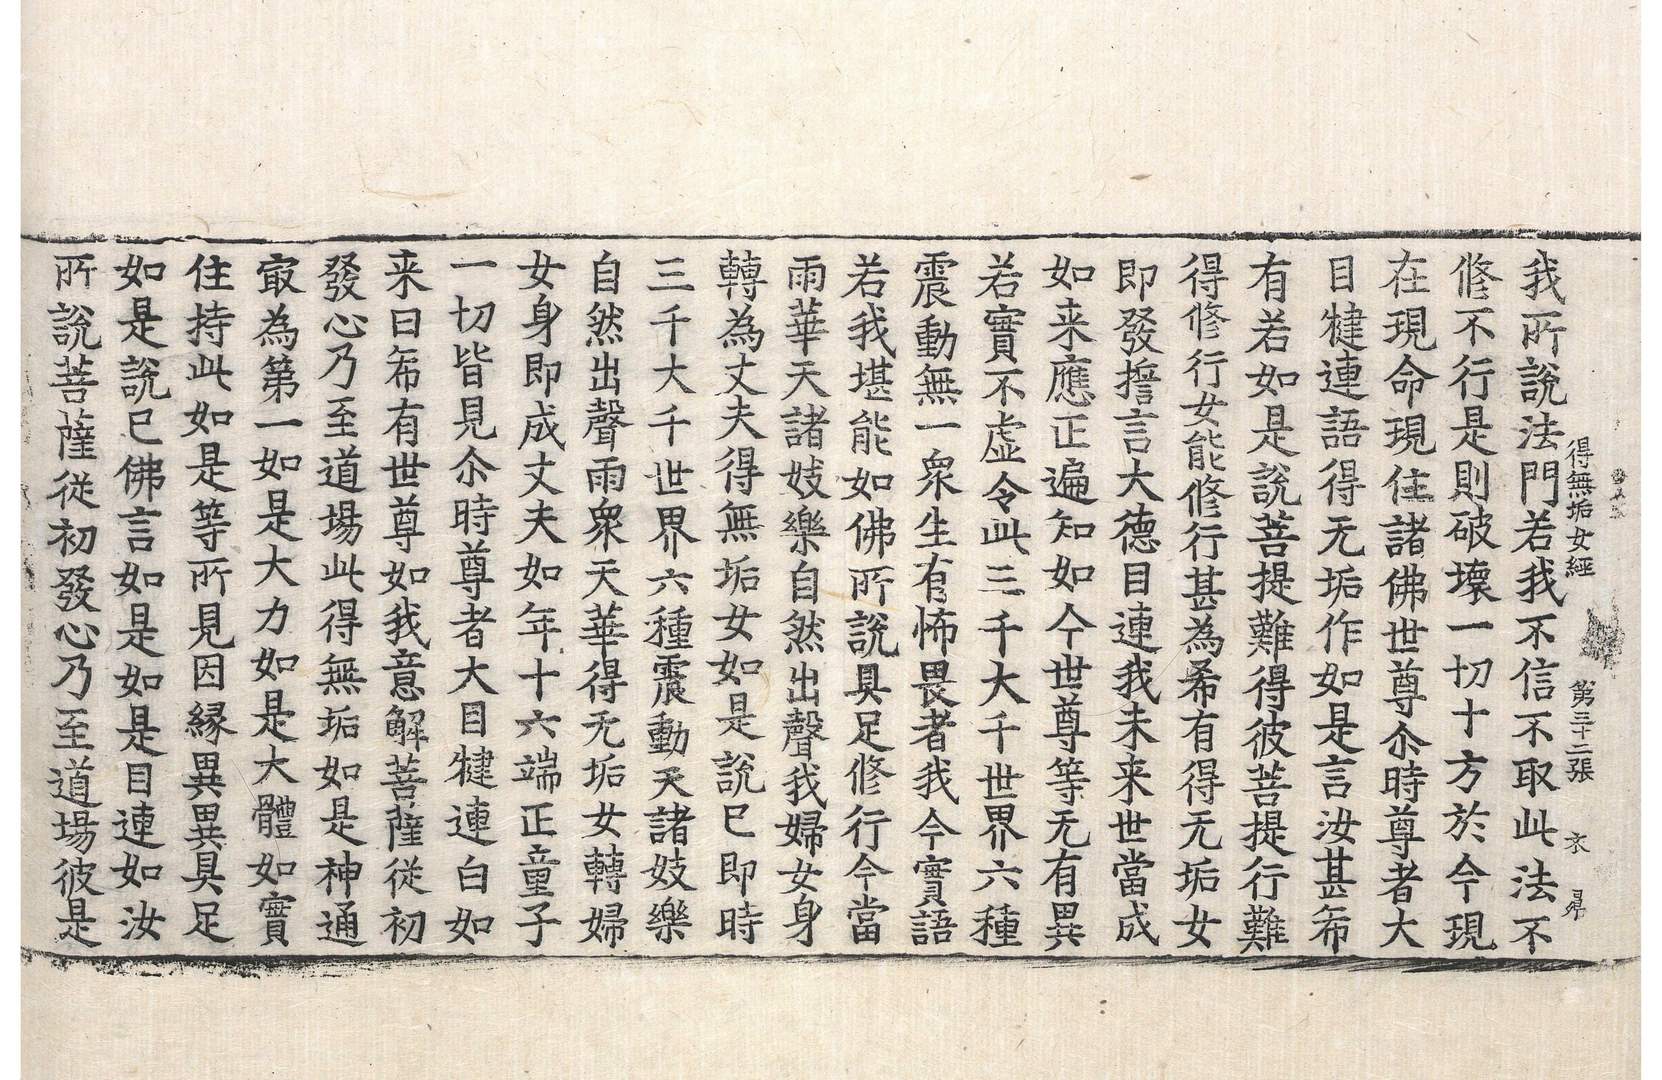 得無垢女經 第三十二張 衣 昇
我所説法門若我不信不取此法不
修不行是則破壞一切十方於今現
在現命現住諸佛世尊尒時尊者大
目犍連語得无垢作如是言汝甚希
有若如是說菩提難得彼菩提行難
得修行女能修行甚為希有得无垢女
即發誓言大德目連我未来世當成
如来應正遍知如今世尊等无有異
若實不虛令此三千大千世界六種
震動無一衆生有怖畏者我今實語
若我堪能如佛所說具足修行今當
雨華天諸妓樂自然出聲我婦女身
轉為丈夫得無垢女如是說已即時
三千大千世界六種震動天諸妓樂
自然出聲雨衆天華得无垢女轉婦
女身即成丈夫如年十六端正童子
一切皆見尒時尊者大目犍連白如
来曰希有世尊如我意解菩薩從初
發心乃至道場此得無垢如是神通
㝡為第一如是大力如是大體如實
住持此如是等所見因縁異異具足
如是說已佛言如是如是目連如汝
所說菩薩從初發心乃至道場彼是